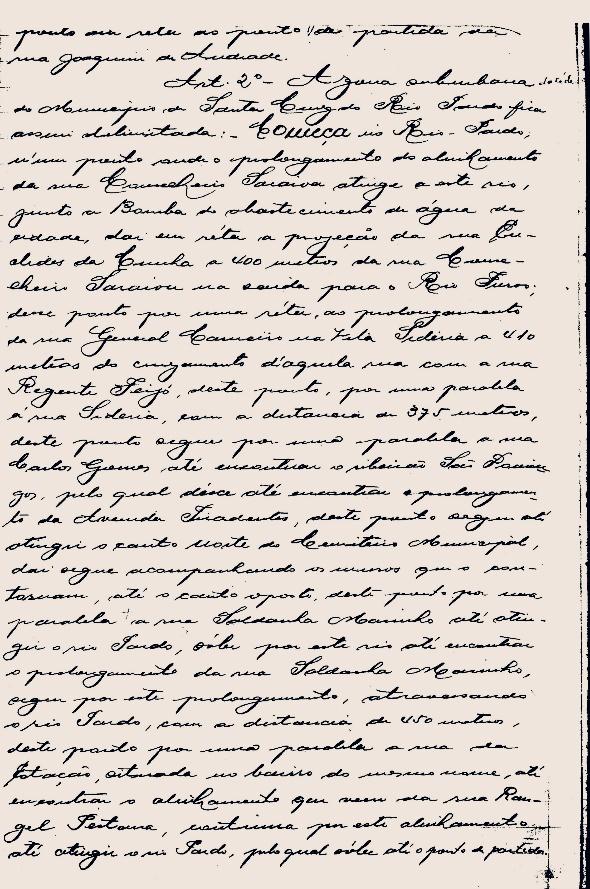 ponto em reta ao ponto de partida na
rua Joaquim de Andrade.
Art. 2º - A zona suburbana
do Municipio de Santa Cruz do Rio Pardo fica
assim delimitada: - Começa no Rio - Pardo,
n'um ponto onde o prolongamento do alinhamento
da rua Conselheiro Saraiva atinge a este rio,
junto a Bomba do abastecimento de água da
cidade, dai em réta a projeção da rua Eu-
clides da Cunha a 400 metros da rua Conse-
lheiro Saraiva na saida para o Rio Turvo;
desse ponto por uma réta, ao prolongamento
da rua General Carneiro na Vila Sideria a 410
metros do cruzamento d'aquela rua com a rua
Regente Feijó, deste ponto, por uma paralela
á rua Sideria, com a distancia de 375 metros,
deste ponto segue por uma paralela a rua
Carlos Gomes, até encontrar o ribeirão São Domin-
gos, pelo qual désce até encontrar o prolongamen-
to da Avenida Tiradentes, deste ponto segue até
atingir o canto norte do Cemitério Municipal,
dai segue acompanhando os muros que o con-
tornam, até o canto oposto, deste ponto por uma
paralela a rua Saldanha Marinho até atin-
gir o rio Pardo, sóbe por este rio até encontrar
o prolongamento da rua Saldanha Marinho,
segue por este prolongamento, atravessando
o rio Pardo, com a distancia de 450 metros,
deste ponto por uma paralela a rua da
Estação, situada no bairro do mesmo nome, até
encontrar o alinhamento que vem da rua Ran-
gel Pestana, continua por este alinhamento
até atingir o rio Pardo, pelo qual sóbe até o ponto de partida.